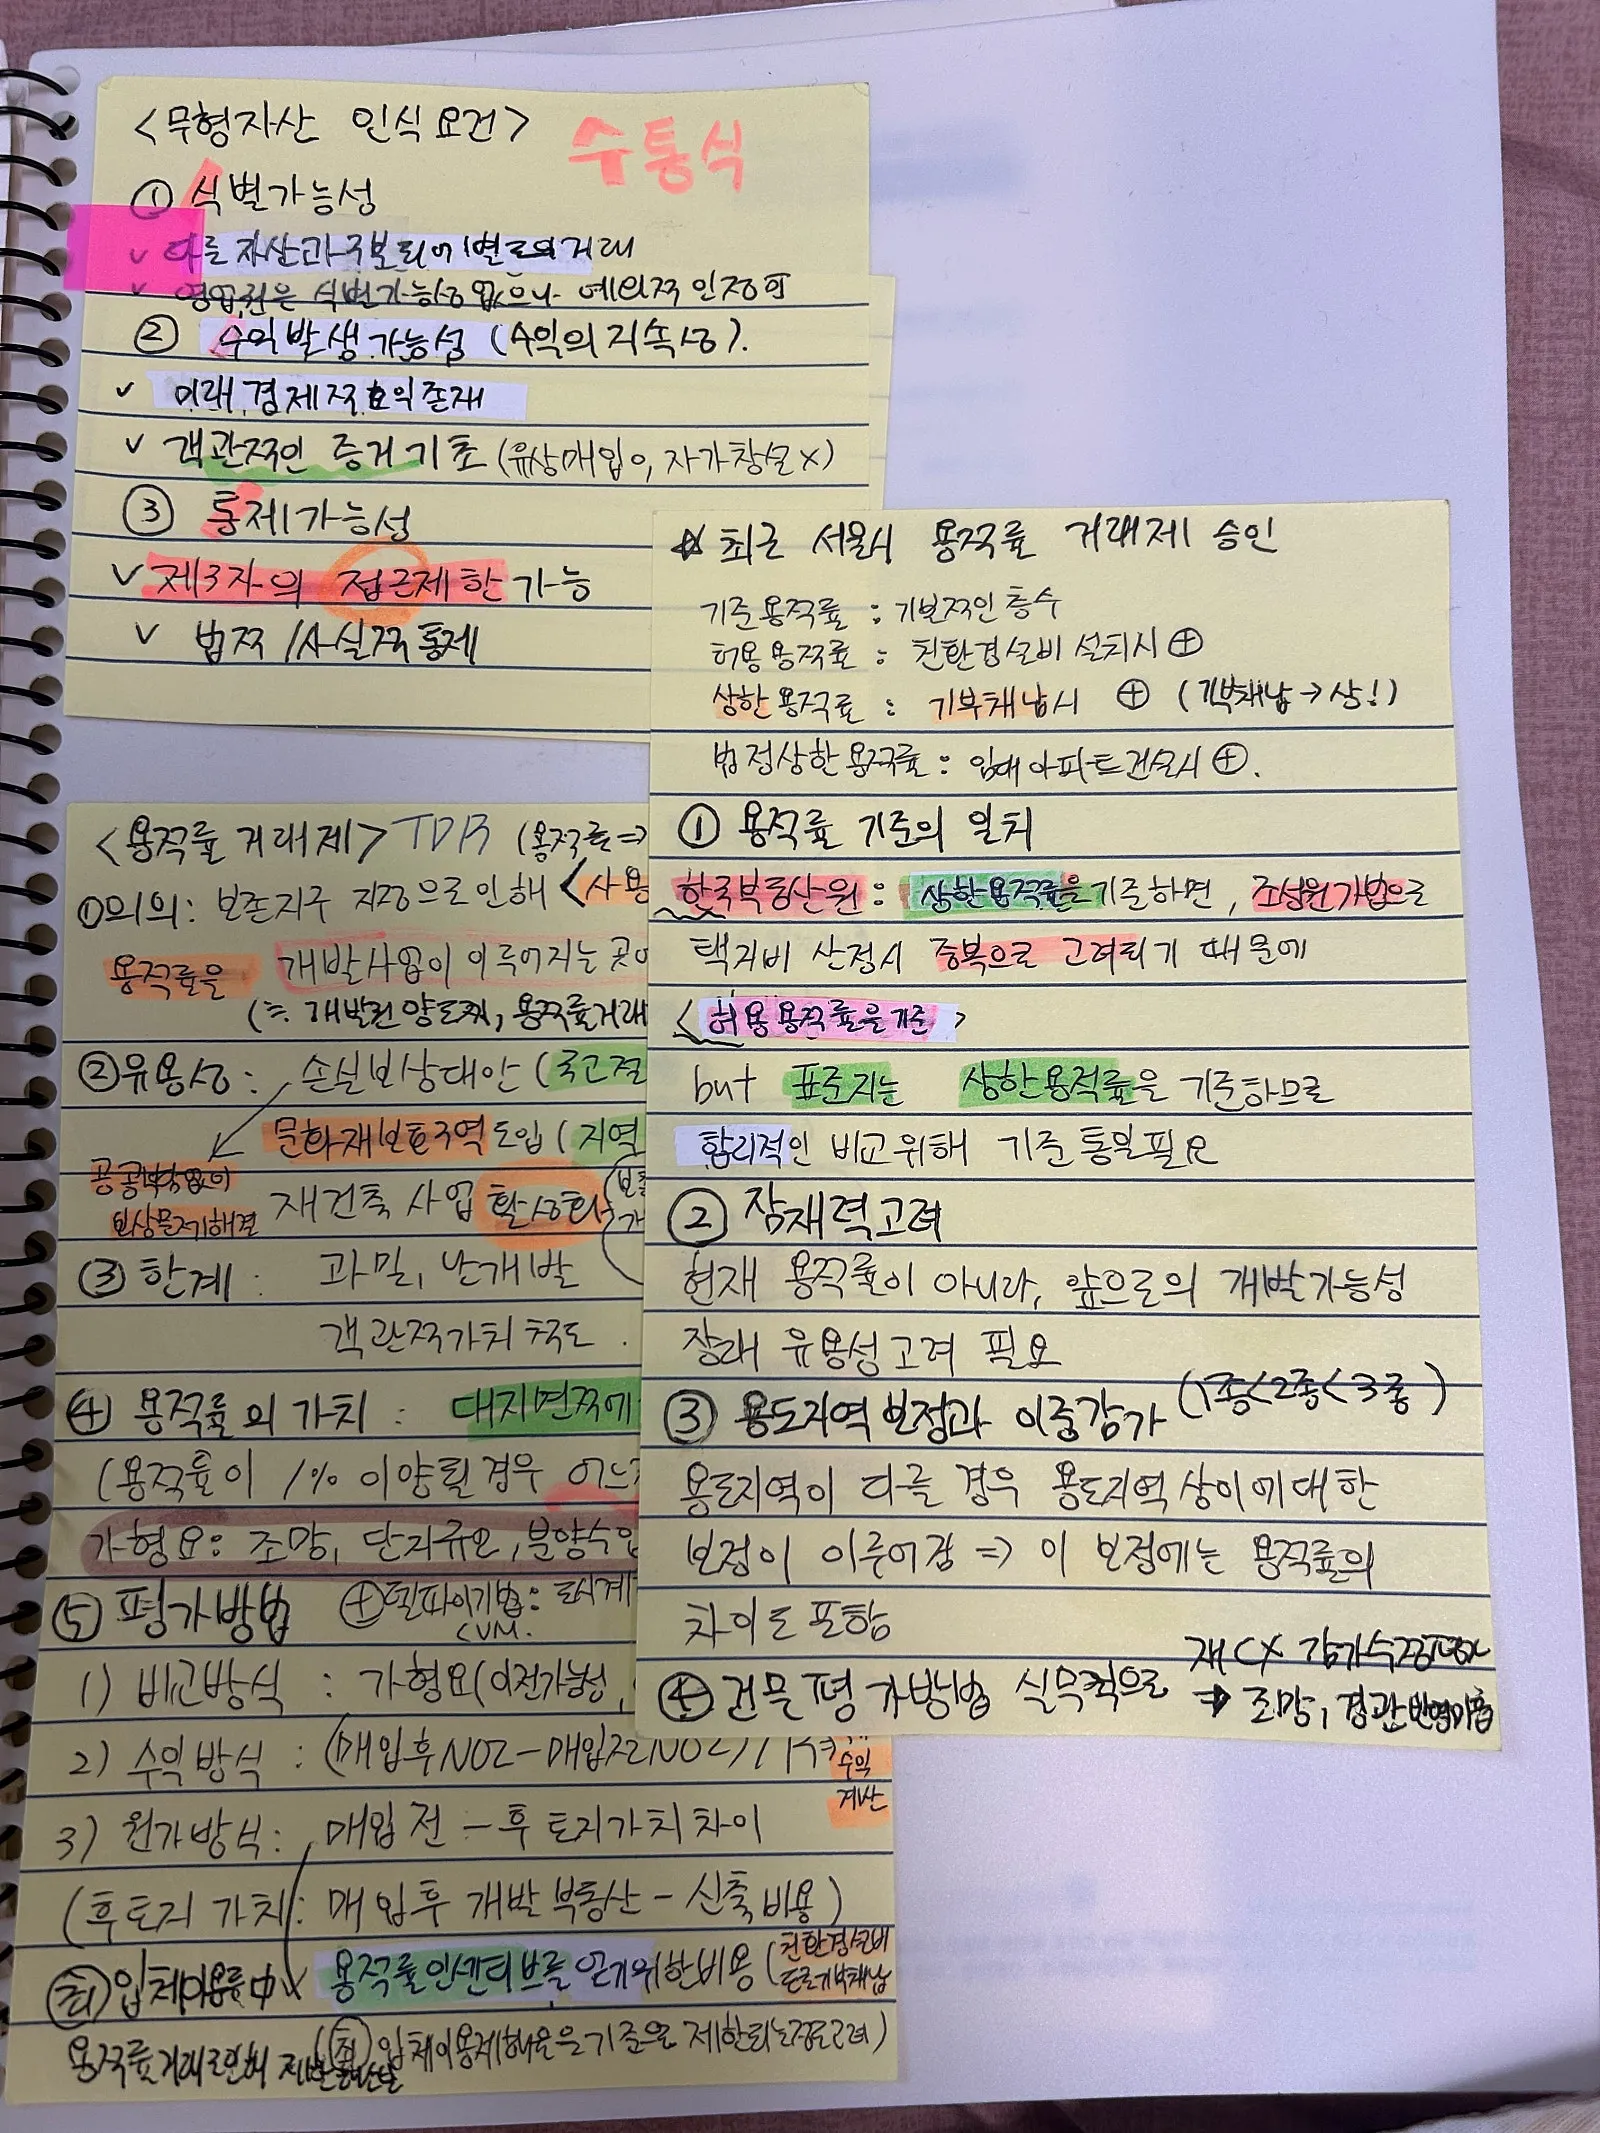 <무형자산 인식요건>
수통식
① 식별가능성
✓ 다른 자산과 구분되어 별도의 거래
✓ 영업권은 식별가능성 없으나 예외적 인정 可
② 수익발생가능성 (수익의 지속성).
✓ 미래 경제적 효익 존재
✓ 객관적인 증거 기초 (유상매입 o, 자가창설 x)
③ 통제가능성
✓ 제3자의 접근제한 가능
✓ 법적/사실적 통제
☆ 최근 서울시 용적률 거래제 승인
기준용적률 : 기본적인 층수
허용용적률 : 친환경설비 설치시 ⊕
상한용적률 : 기부채납시 ⊕ (기부채납 → 상!)
법정상한용적률 : 임대아파트건설시 ⊕.
① 용적률 기준의 일치
한국부동산원 : 상한용적률을 기준하면, 조성원가법으로
택지비 산정시 중복으로 고려되기 때문에
<허용용적률을 기준>
but 표준지는 상한용적률을 기준하므로
합리적인 비교위해 기준통일필요
② 잠재력고려
현재 용적률이 아니라, 앞으로의 개발가능성
장래 유용성고려 필요
③ 용도지역보정과 이중감가 (1종<2종<3종)
용도지역이 다를 경우 용도지역상이에 대한
보정이 이루어짐 => 이 보정에는 용적률의
차이도 포함
④ 건물평가방법 실무적으로
→ 조망, 경관반영미흡
<용적률 거래제> TDR (용적률 =>
①의의 : 보존지구 지정으로 인해 <사용
용적률을 개발사업이 이루어지는 곳
(≒ 개발권양도제, 용적률거래
②유용성 : 손실보상대안 (국고절
문화재보호구역 도입 (지역
공공부담없이
보상문제해결
재건축 사업 활성화
③ 한계 : 과밀, 난개발
객관적가치 척도.
④ 용적률의 가치 : 대지면적에
(용적률이 1% 이양될 경우 어느
가형요: 조망, 단지규모, 분양수입
⑤ 평가방법 ⊕델파이기법 : 도시계
CVM.
1) 비교방식 : 가형요(이전가능성,
2) 수익방식 : (매입후NOI-매입전NOI)/
수익
계산
3) 원가방식 : 매입전-후 토지가치차이
(후토지 가치 : 매입후 개발 부동산 - 신축비용)
용적률인센티브를 얻기위한비용 (친환경설비
도로기부채납
용적률거래로인해
입체이용제한율을 기준으로 제한되는정도고려)